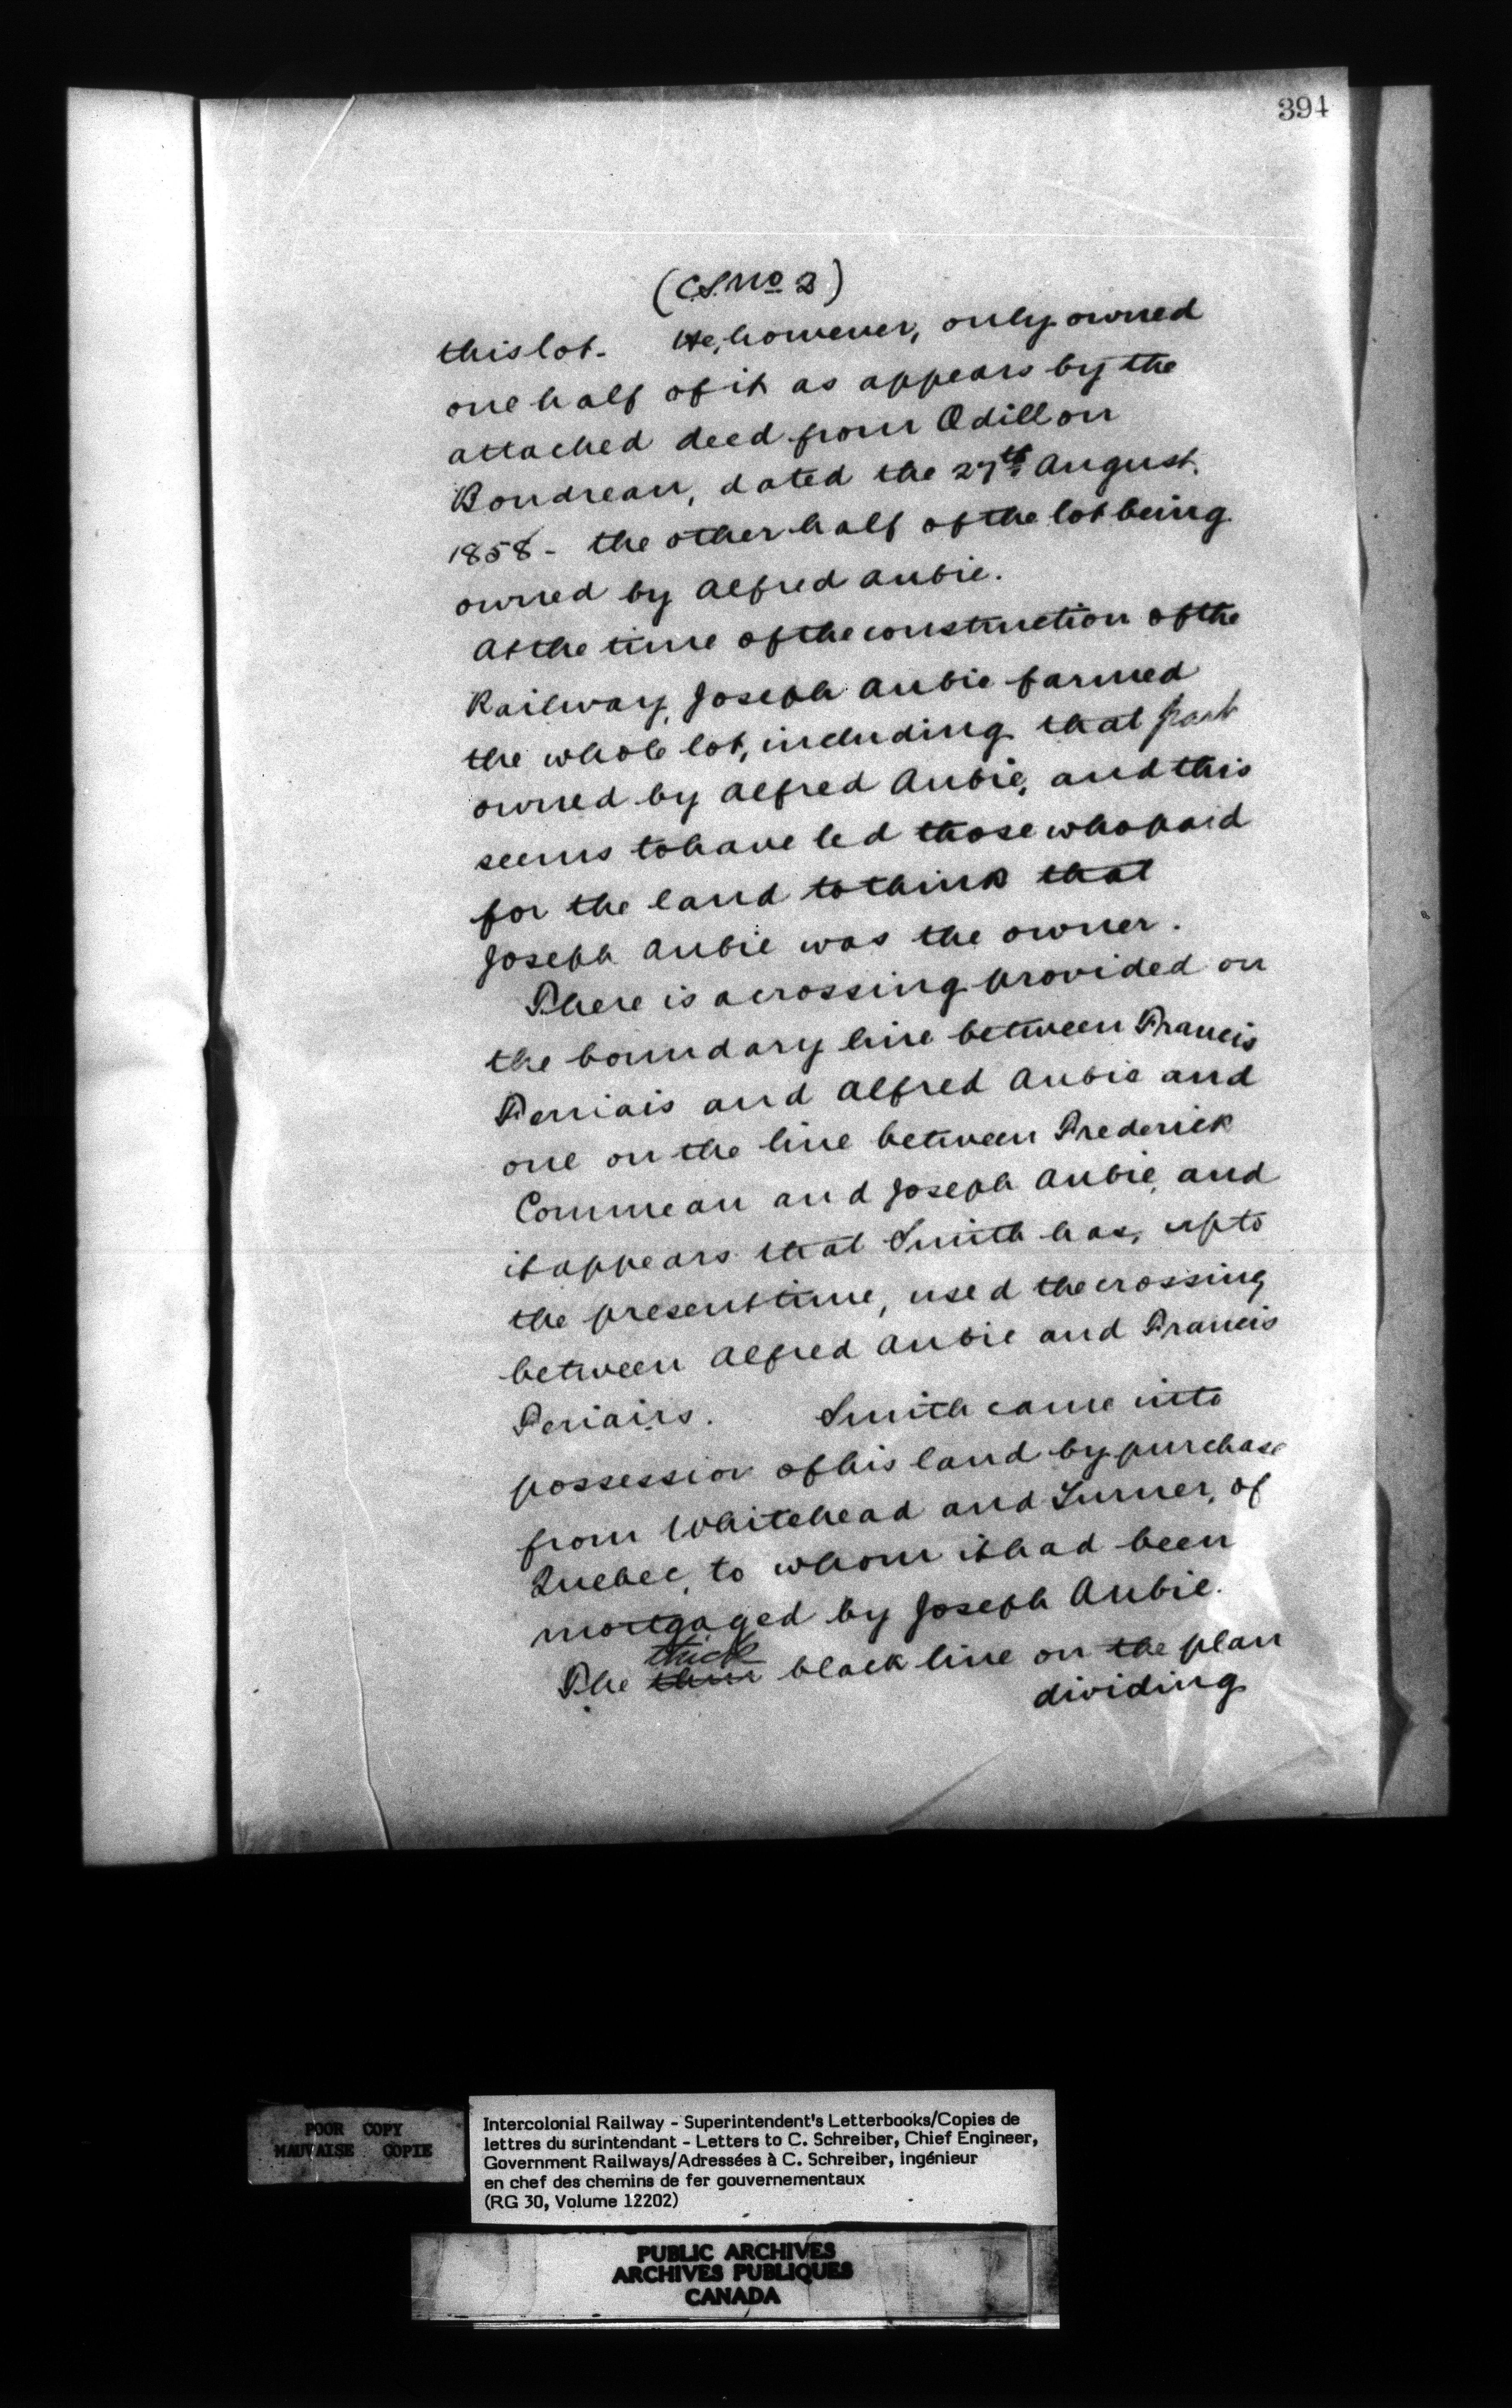 394
(C.S. No 2)
this lot. He, however, only owned
one half of it as appears by the
attached deed from Odillon
Boudreau, dated the 27th August
1858 - the other half of the lot being
owned by Alfred Aubie.
At the time of the construction of the
Railway, Joseph Aubie farmed
the whole lot, including that part
owned by Alfred Aubie, and this
seems to have led those who paid
for the land to think that
Joseph Aubie was the owner.
There is a crossing provided on
the boundary line between Francis
Ferriais and Alfred Aubie and
one on the line between Frederick
Commeau and Joseph Aubie, and
it appears that Smith has, up to
the present time, used the crossing
between Alfred Aubie and Francis
Feriairs. Smith came into
possession of his land by purchase
from Whitehead and Turner, of
Quebec, to whom it had been
mortgaged by Joseph Aubie.
thick
The thin black line on the plan
dividing
POOR COPY
MAUVAISE COPIE
Intercolonial Railway - Superintendent's Letterbooks/Copies de
lettres du surintendant - Letters to C. Schreiber, Chief Engineer,
Government Railways/Adressées à C. Schreiber, ingénieur
en chef des chemins de fer gouvernementaux
(RG 30, Volume 12202)
PUBLIC ARCHIVES
ARCHIVES PUBLIQUES
CANADA